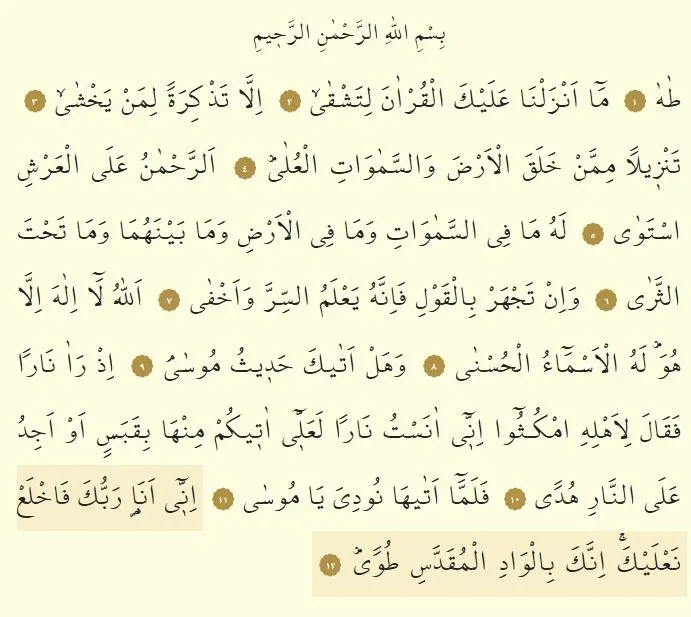 بِسْمِ اللّٰهِ الرَّحْمٰنِ الرَّحٖيمِ
طٰهٰ ١ مَٓا اَنْزَلْنَا عَلَيْكَ الْقُرْاٰنَ لِتَشْقٰىۙ ٢ اِلَّا تَذْكِرَةً لِمَنْ يَخْشٰىۙ ٣
تَنْزٖيلًا مِمَّنْ خَلَقَ الْاَرْضَ وَالسَّمٰوَاتِ الْعُلٰىؕ ٤ اَلرَّحْمٰنُ عَلَى الْعَرْشِ
اسْتَوٰى ٥ لَهُ مَا فِى السَّمٰوَاتِ وَمَا فِى الْاَرْضِ وَمَا بَيْنَهُمَا وَمَا تَحْتَ
الثَّرٰى ٦ وَاِنْ تَجْهَرْ بِالْقَوْلِ فَاِنَّهُ يَعْلَمُ السِّرَّ وَاَخْفٰى ٧ اَللّٰهُ لَٓا اِلٰهَ اِلَّا
هُوَؕ لَهُ الْاَسْمَٓاءُ الْحُسْنٰى ٨ وَهَلْ اَتٰيكَ حَدٖيثُ مُوسٰىۘ ٩ اِذْ رَاٰ نَارًا
فَقَالَ لِاَهْلِهِ امْكُثُٓوا اِنّٖٓى اٰنَسْتُ نَارًا لَعَلّٖٓى اٰتٖيكُمْ مِنْهَا بِقَبَسٍ اَوْ اَجِدُ
عَلَى النَّارِ هُدًى ١٠ فَلَمَّٓا اَتٰيهَا نُودِىَ يَا مُوسٰى ١١ اِنّٖٓى اَنَا۬ رَبُّكَ فَاخْلَعْ
نَعْلَيْكَۚ اِنَّكَ بِالْوَادِ الْمُقَدَّسِ طُوًىؕ ١٢